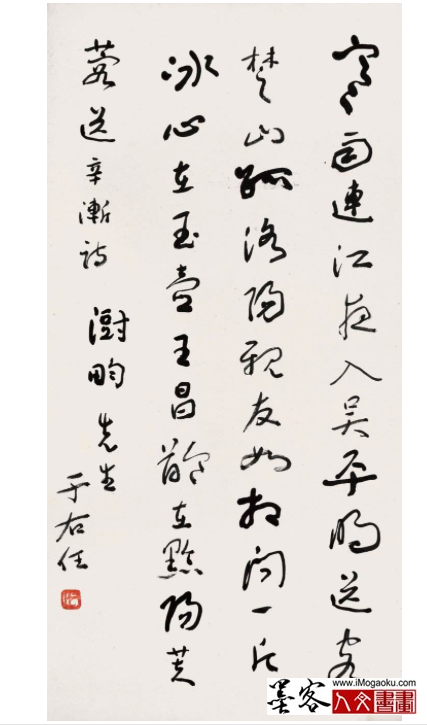 寒雨連江夜入吳平明送客
楚山孤洛陽親友如相問一片
冰心在玉壺王昌齡在黔陽芙
蓉送辛漸詩
澍畇先生
于右任
墨客
www.iMogaoku.com
人文書畫